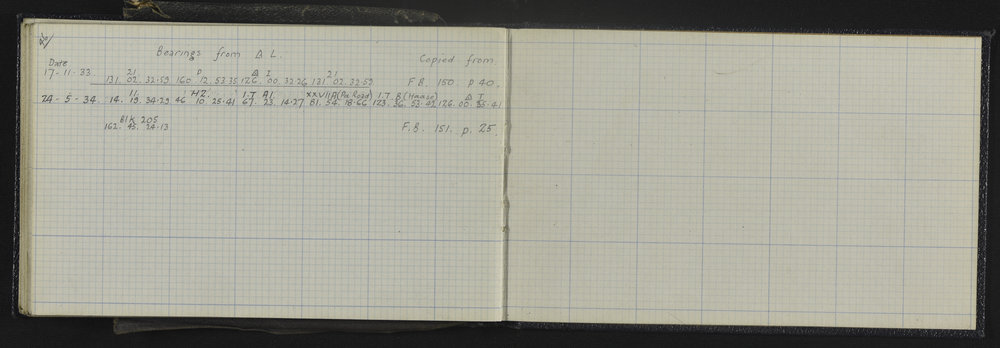 Bearings from Δ L. Copied from
Date
17-11-33. 21 P Δ I 21
131. 02. 32·59 160 12. 53·35 126. 00. 32·26 131 02. 32·59 F.B. 150. p 40.
11 HZ I.T A1 XXVIIA(Pa Road) I.T B(House) Δ I
24-5-34. 14. 19. 34·29 46 10. 25·41 67. 23. 14·27 81. 54. 18·66 123. 36. 53·42 126. 00. 35·41
Blk 205
162. 45. 24·13 F.B. 151. p. 25.